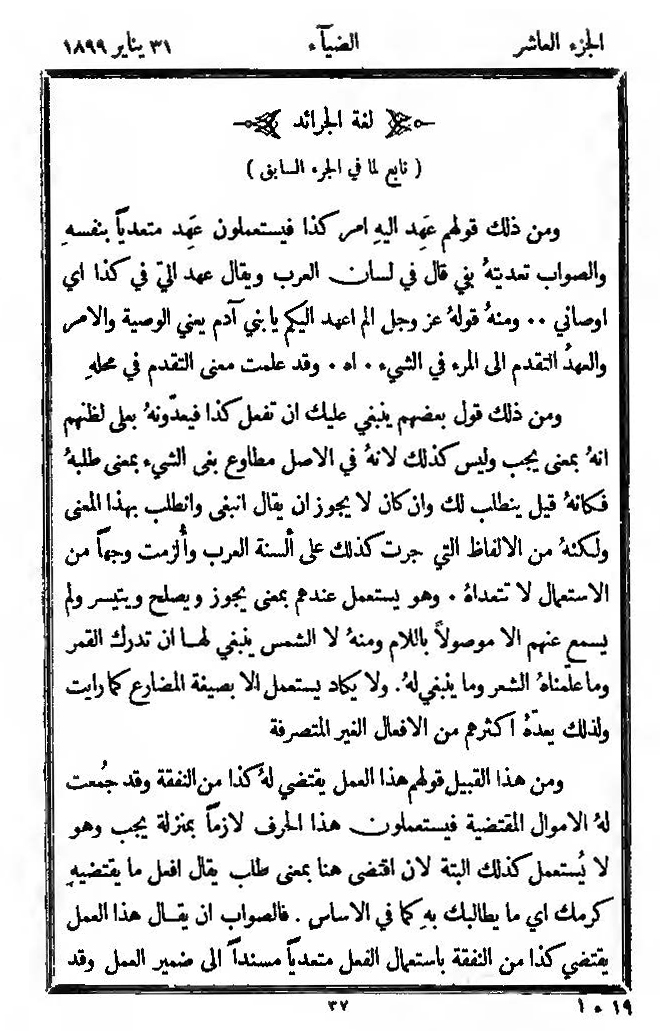 الجزء العاشر الضيآء ٣١ يناير ١٨٩٩
لغة الجرائد
( تابع لما في الجزء السابق )
ومن ذلك قولهم عَهِد اليهِ امر كذا فيستعملون عَهِد متعدياً بنفسهِ
والصواب تعديتهُ بفي قال في لسان العرب ويقال عهد اليّ في كذا اي
اوصاني ٠٠ ومنهُ قولهُ عز وجل الم اعهد اليكم يا بني آدم يعني الوصية والامر
والعهدُ التقدم الى المرء في الشيء ٠ اه ٠ وقد علمت معنى التقدم في محلهِ
ومن ذلك قول بعضهم ينبغي عليك ان تفعل كذا فيعدّونهُ بعلى لظنهم
انهُ بمعنى يجب وليس كذلك لانهُ في الاصل مطاوع بغى الشيء بمعنى طلبهُ
فكانهُ قيل ينطلب لك وان كان لا يجوز ان يقال انبغى وانطلب بهذا المعنى
ولكنهُ من الالفاظ التي جرت كذلك على ألسنة العرب وأُلزمت وجهاً من
الاستعمال لا تتعداهُ ٠ وهو يستعمل عندهم بمعنى يجوز ويصلح ويتيسر ولم
يسمع عنهم الا موصولاً باللام ومنهُ لا الشمس ينبغي لهـا ان تدرك القمر
وما علّمناهُ الشعر وما ينبغي لهُ. ولا يكاد يستعمل الا بصيغة المضارع كما رايت
ولذلك يعدّهُ اكثرهم من الافعال الغير المتصرفة
ومن هذا القبيل قولهم هذا العمل يقتضي لهُ كذا من النفقة وقد جُمعت
لهُ الاموال المقتضية فيستعملون هذا الحرف لازماً بمنزلة يجب وهو
لا يُستعمل كذلك البتة لان اقتضى هنا بمعنى طلب يقال افعل ما يقتضيهِ
كرمك اي ما يطالبك بهِ كما في الاساس . فالصواب ان يقـال هذا العمل
يقتضي كذا من النفقة باستعمال الفعل متعدياً مسنداً الى ضمير العمل وقد
٣٧
١٩ ٠ ١